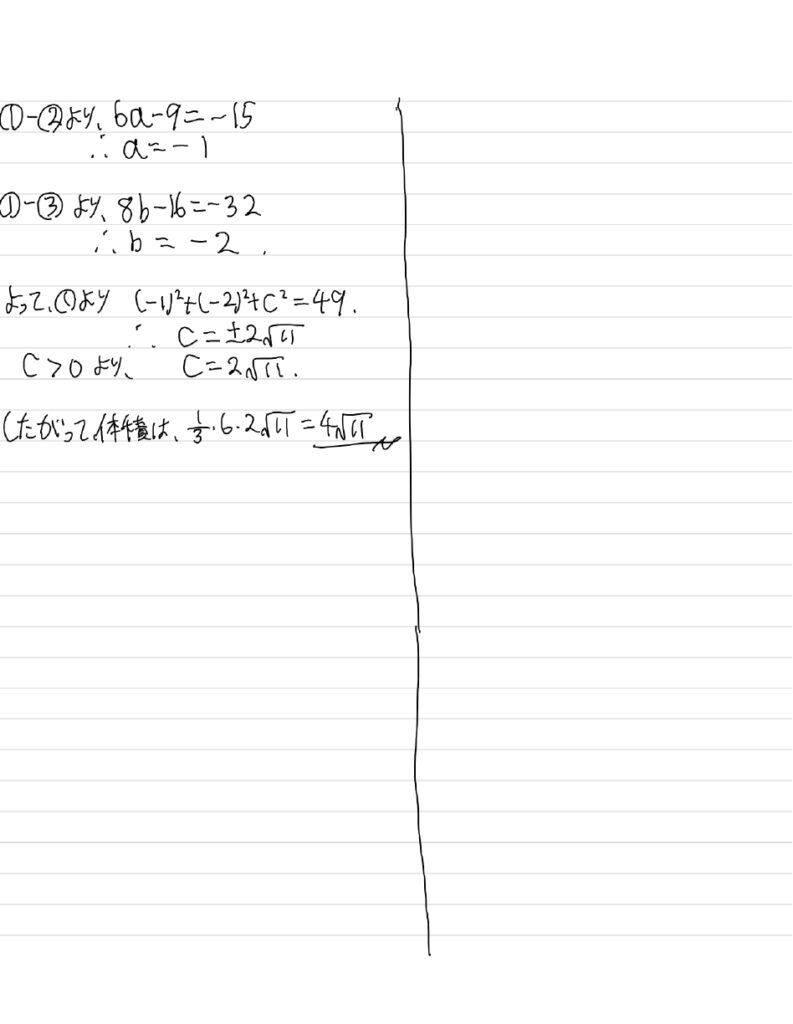 ①-②より、6a-9=-15
∴ a=-1
①-③より、8b-16=-32
∴ b=-2.
よって、①より (-1)²+(-2)²+c²=49.
∴ c=±2√11
c>0より、 c=2√11.
したがって、体積は、1/3・6・2√11=4√11